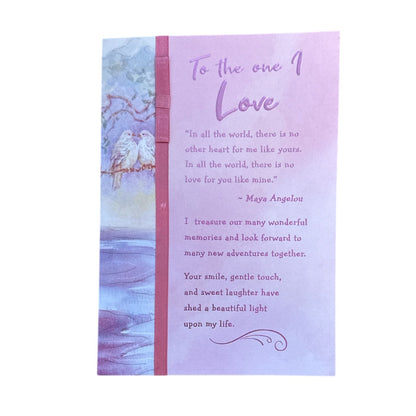 To the one I
Love
"In all the world, there is no
other heart for me like yours.
In all the world, there is no
love for you like mine."
~ Maya Angelou
I treasure our many wonderful
memories and look forward to
many new adventures together.
Your smile, gentle touch,
and sweet laughter have
shed a beautiful light
upon my life.